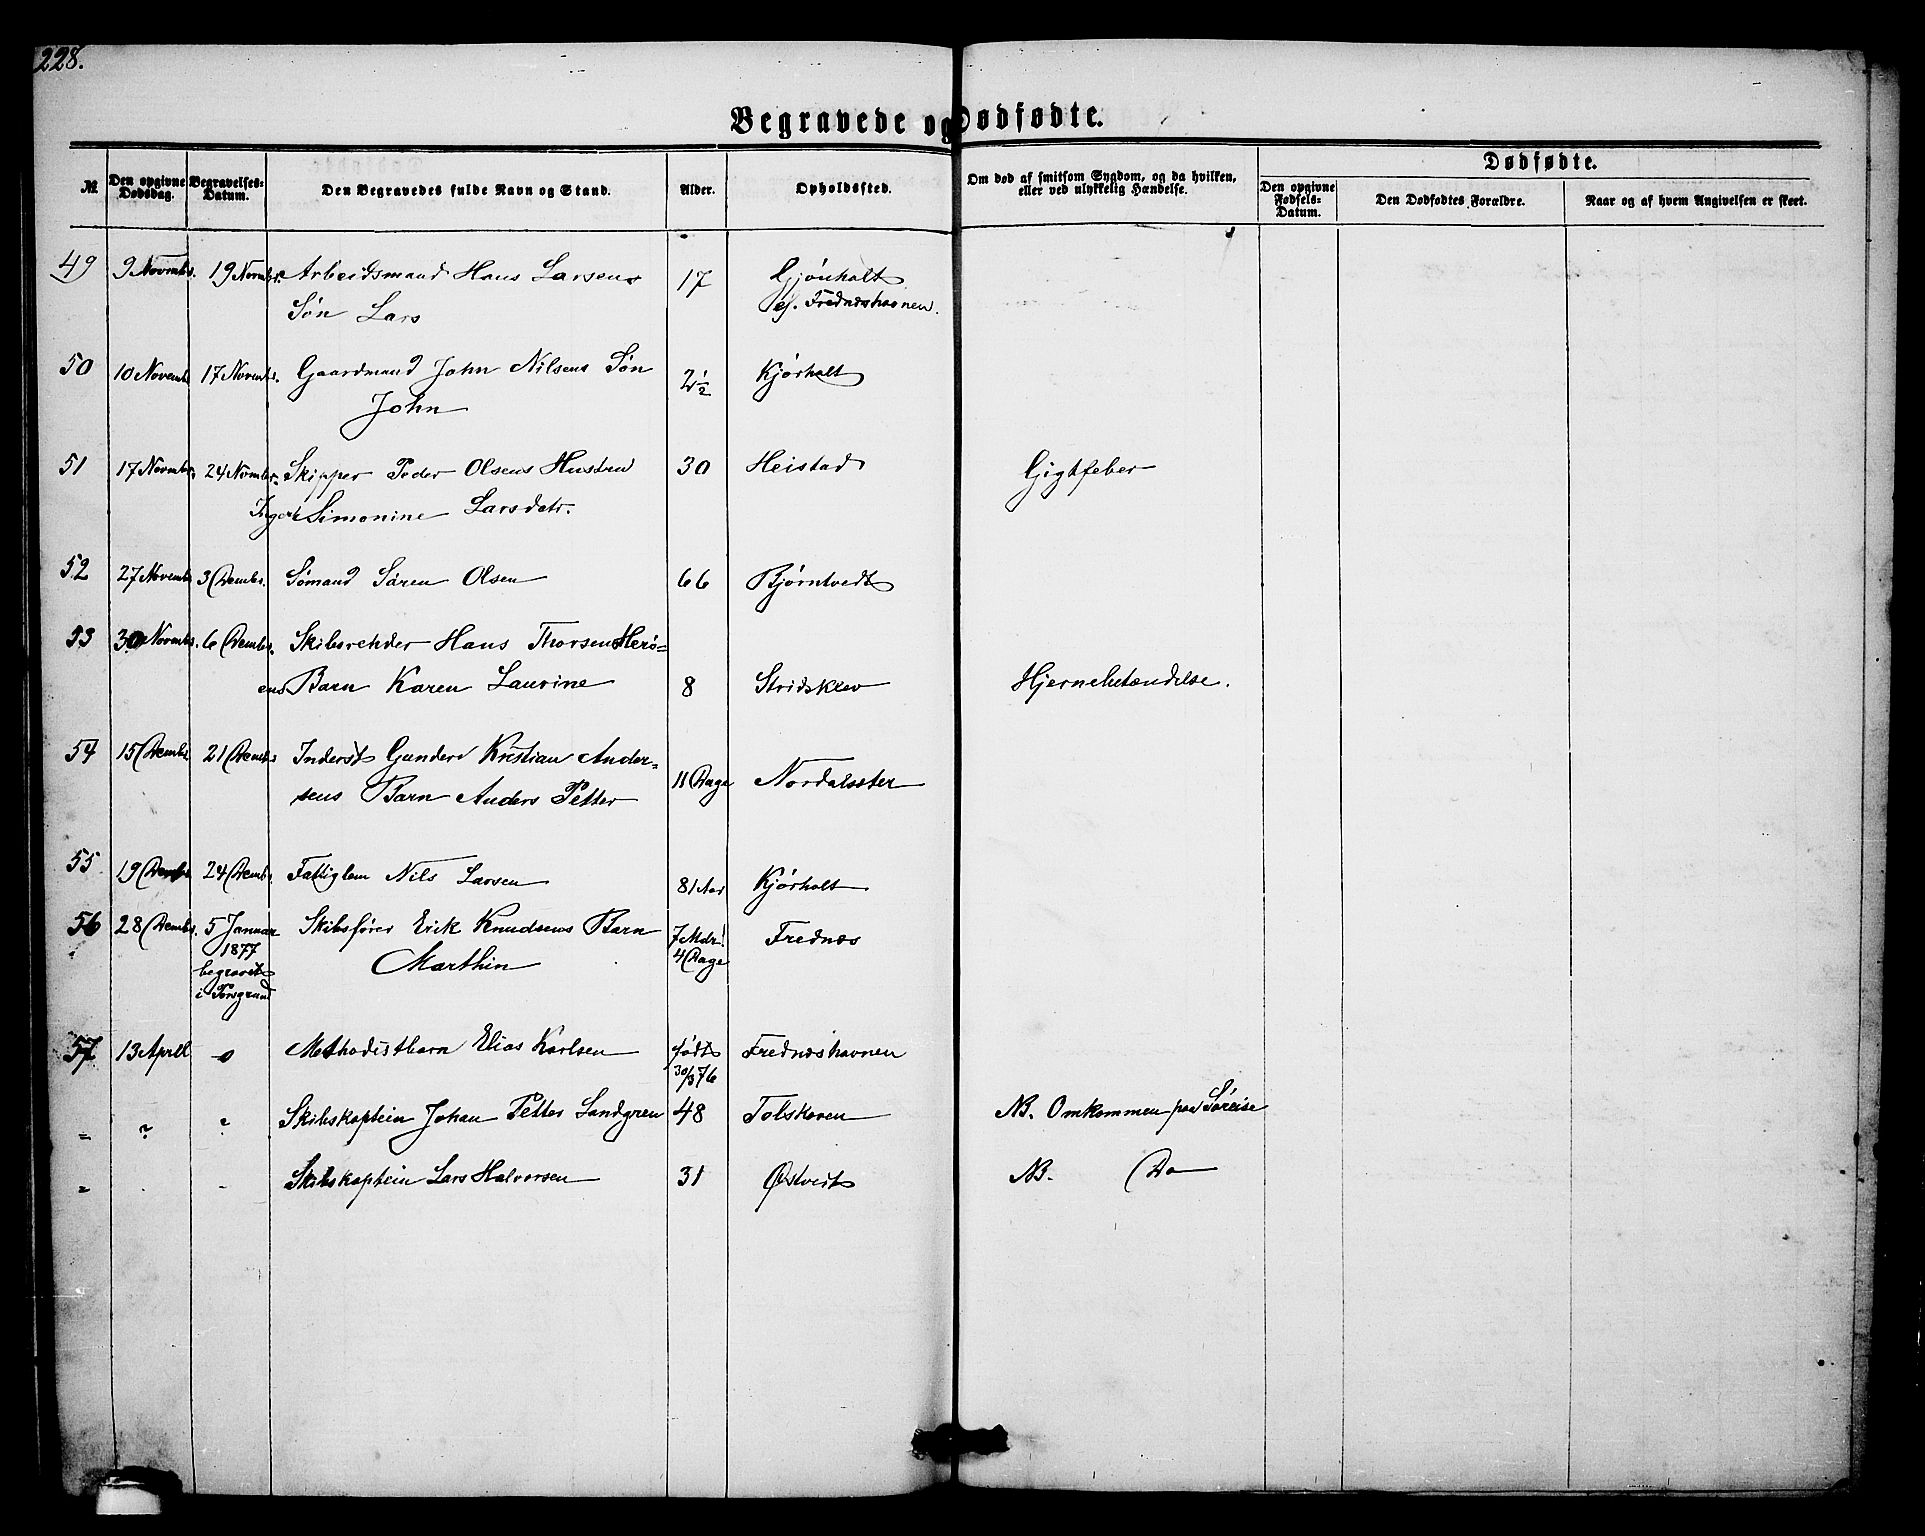 228.
Begravede og Dødfødte.
№ Den opgivne Dødsdag. Begravelses-Datum. Den Begravedes fulde Navn og Stand. Alder. Opholdssted. Om død af smitsom Sygdom, og da hvilken, eller ved ulykkelig Hændelse. Dødfødte.
Den opgivne Fødsels-Datum. Den Dødfødtes Forældre. Naar og af hvem Angivelsen er skeet.
49 9 Novembr. 19 Novembr. Arbeidsmand Hans Larsens 17 Gjónholt
Søn Lars ef. Frednæshavnen.
50 10 Novembr 17 Novembr. Gaardmand John Nilsens Søn 2½ Kjørholt
John
51 17 Novembr. 24 Novmbr. Skipper Peder Olsens Hustru 30 Heistad Gigtfeber
Ingert Simonine Larsdatr.
52 27 Novembr 3 Decembr. Sømand Søren Olsen 66 Bjørntvedt
53 30 Novembr. 6 Decembr. Skibsrehder Hans Thorsen Herø-
ens Barn Karen Laurine 8 Stridsklev Hjernebetændelse.
54 15 Decembr 21 Decembr Inderst Gunder Kristian Ander-
sens Barn Anders Petter 11 Dage Nordalsster
55 19 Decembr 24 Decembr. Fattiglem Nils Larsen 81 Aar Kjørholt
56 28 Decembr. 5 Januar Skibsfører Erik Knudsens Barn 7 Mdr. Frednæs
1877 Marthin 4 Dage
begravet
i Porsgrund
57 13 April Methodistbarn Elias Karlsen født Frednæshavnen
30/3 76
" ? " Skibskaptein Johan Petter Landgren 48 Tolskoven NB. Omkommen paa Søreise
" Skibskaptein Lars Halvorsen 31 Østvedt NB. Do